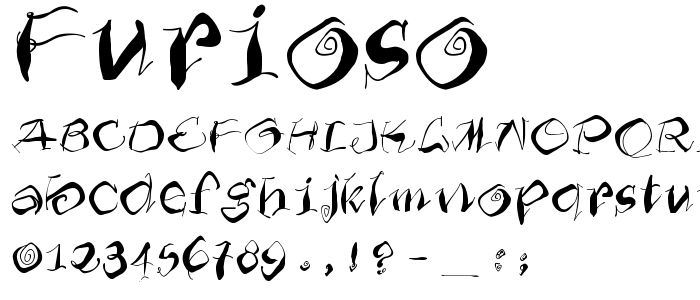 Furioso
ABCDEFGHIJKLMNOPQR
abcdefghijklmnopqrstu
0123456789.,!?-_:;